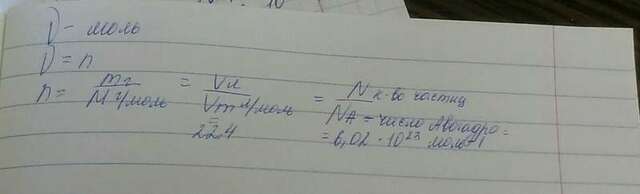 ν - моль
ν = n
n = m г / M г/моль = V л / Vm л/моль = N к-во частиц / NA = число Авогадро =
22,4 = 6,02 · 10²³ моль⁻¹